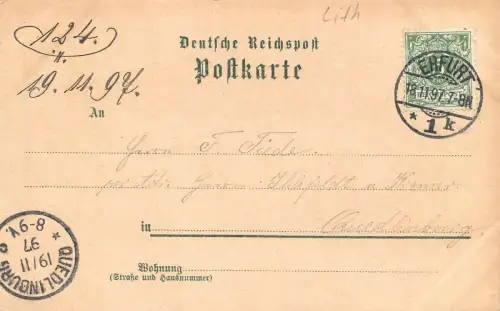 Lith
124.
Deutsche Reichspost
Postkarte
19.11.97.
An
ERFURT
18.11.97.7-8N
* 1 k
Herrn F. Tiede
Herrn
in Quedlinburg
Wohnung
(Straße und Hausnummer)
QUEDLINBURG
19/11
97
8-9V.